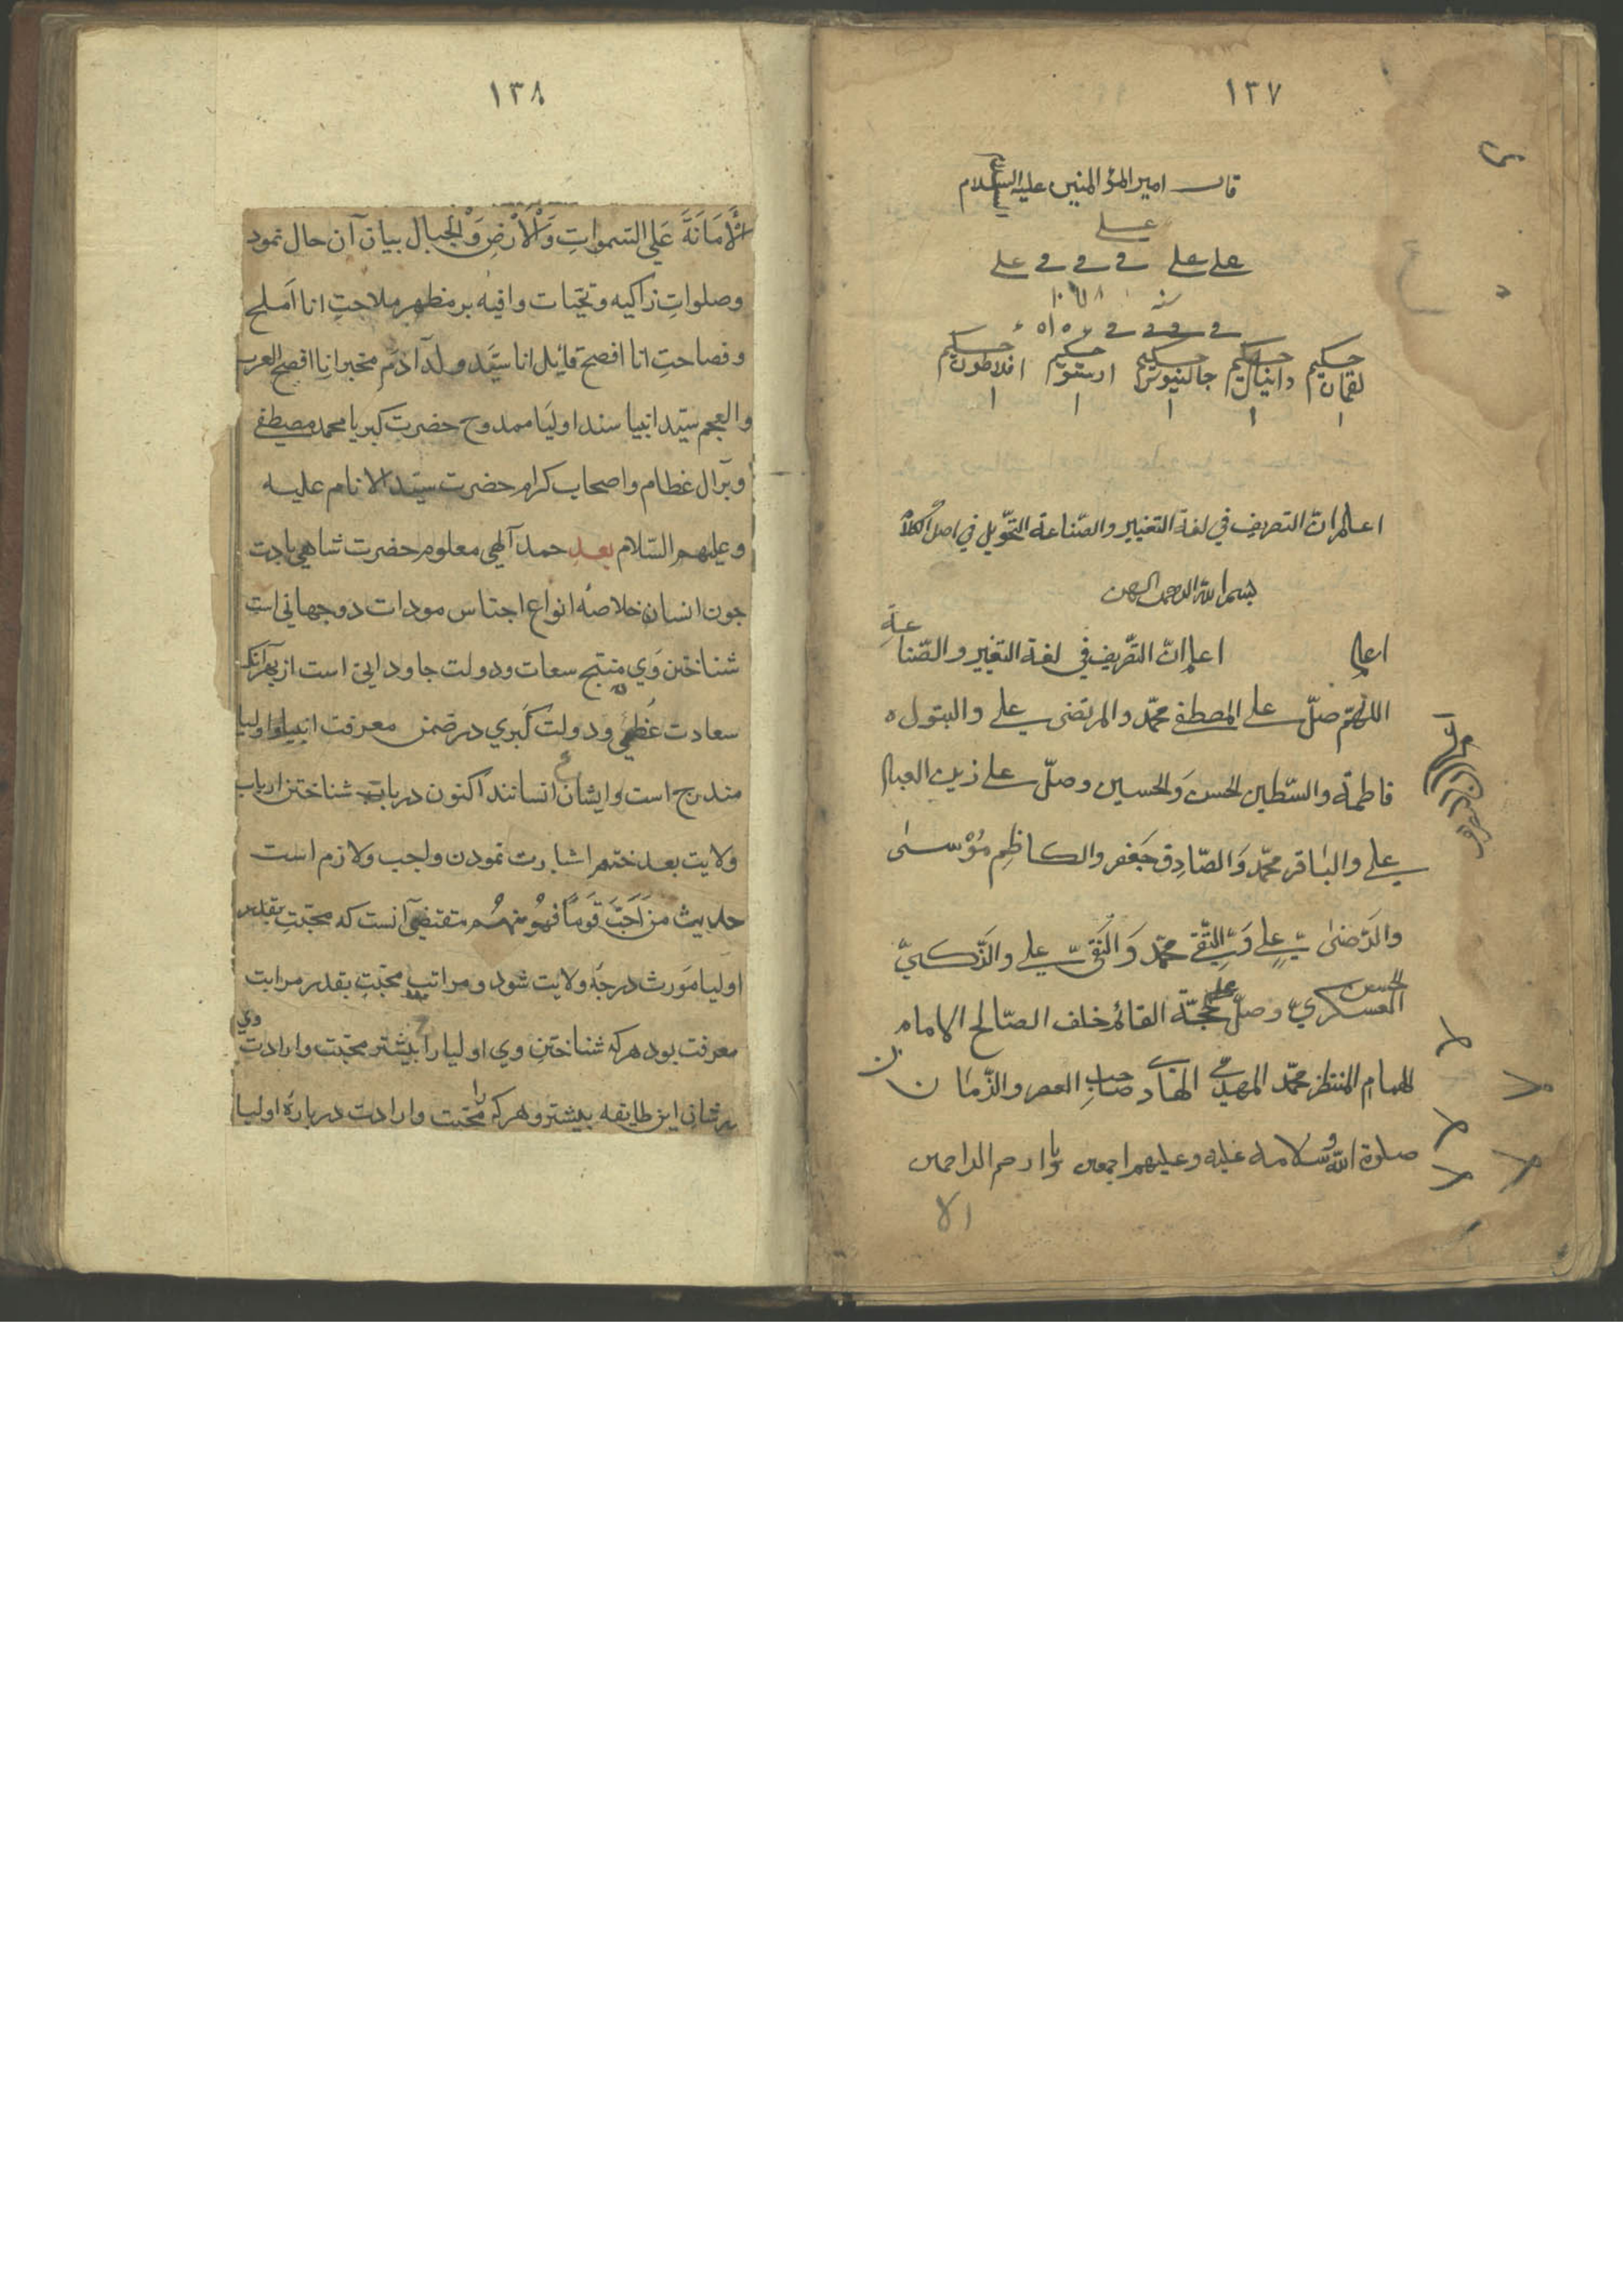 ١٣٧
قال امير المؤ المنين عليه السلام
علي
علي علي في في في علي
سنه ١٠٦٨
حكيم لقمان حكيم دانيال حكيم جالينوس حكيم ارسطو حكيم افلاطون
١ ١ ١ ١ ١
اعلم ان التصريف في لغة التغيير والصّناعة التحّويل في اصل
بسم الله الرحمن الرحيم
اعلم اعلم انّ التصّريف في لغة التغيير و الصّناعة
اللهّم صلّ علي المصطفي محمّد والمرتضى علي والبتول
فاطمة والسّبطين الحسن وَالحسين وصلّ علي زين العباد
علي والباقر محمّد وَالصّادِق جَعفر والكاظِم مُوْسىٰ
والرّضىٰ علي وَالتّقي محمّد وَالنّقي علي والزّكيّ
الحسن العسكريّ وصلّ علي حجّة القائم خلف الصّالح الامام
الهمام المنتظر محمّد المهديّ الهادي صاحبِ العصر والزّمان
صلوة اللّه وسلامه عليه وعليهم اجمعين يا ارحم الراحمين
١٣٨
الْاَمَانَةَ عَلَي السّمواتِ وَالْاَرْضِ وَالْجبال بيان آن حال نمود
وصلواتِ زاكيه و تحيّات وافيه بر مظهر ملاحتِ انا اَملح
و فصاحتِ انا افصح قايل انا سيّد ولد آدَم مخبر انا افصح العرب
والعجم سيّد انبيا سند اوليا ممدوح حضرتِ كبريا محمد مصطفي
و برآل عظام و اصحاب كرام حضرت سيّد الانام عليه
و عليهم السّلام بعدِ حمد آلهي معلوم حضرت شاهي بادت
چون انسان خلاصهٔ انواع اجناس مودات دو جهاني است
شناختن وَي منتج سعات ودولت جاوداني است از بهر آنكه
سعادت عُظمي ودولت كُبري در ضمن معرفت انبيا و اوليا
مندرج است وايشان انسانند اكنون درباب شناختن ارباب
ولايت بعد ختم اشارت نمودن واجب ولازم است
حديث مَنْ اَحَبَّ قَومًا فهُو مِنهُم مقتضي آنست كه محبّتِ بقدر
اوليا مَورث درجهٔ ولايت شود و مراتبِ محبّتِ بقدر مراتب
معرفت بود هركه شناختنِ وي اوليا را بيشتر محبّت وارادت وي
بر شان اين طايفه بيشتر وهركه را محبّت وارادت دربارهٔ اوليا